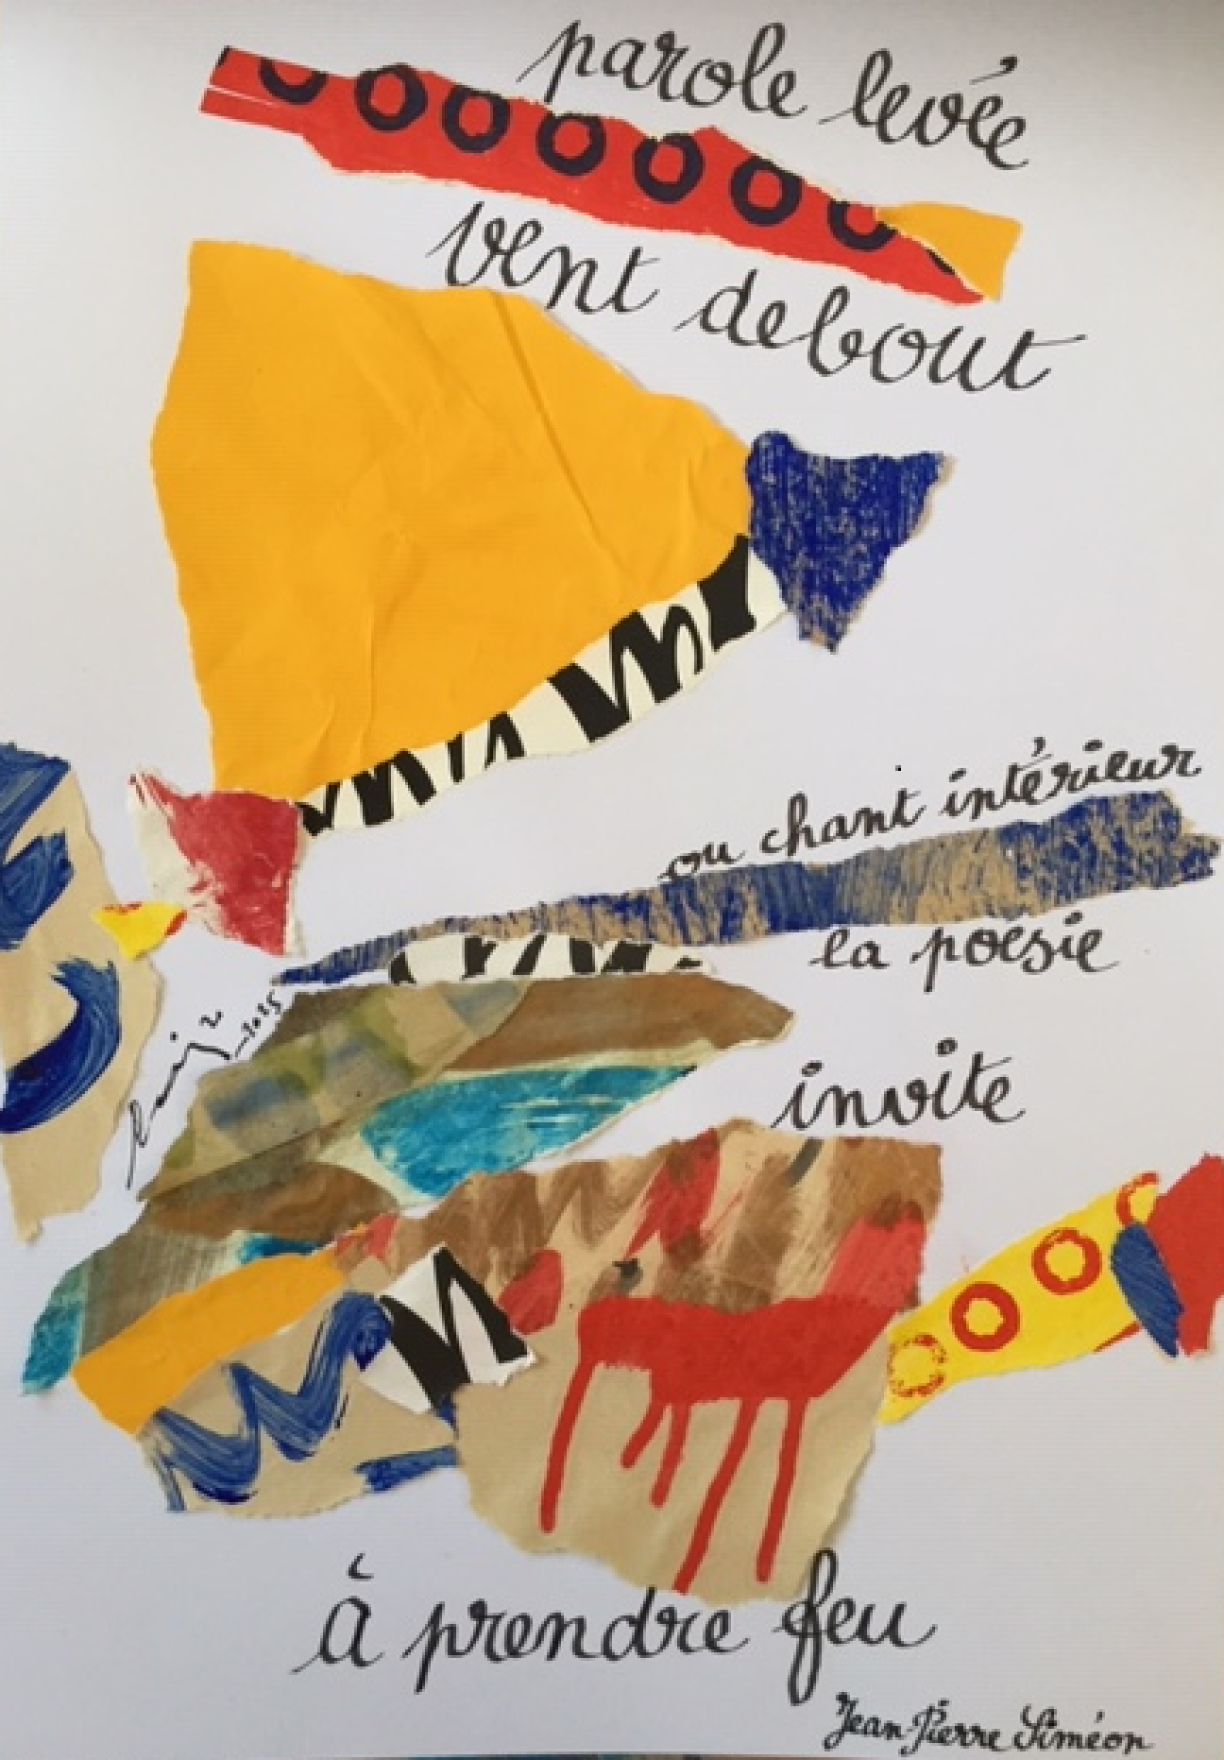 parole levée
vent debout
ou chant intérieur
la poésie
2025
invite
à prendre feu
Jean-Pierre Siméon